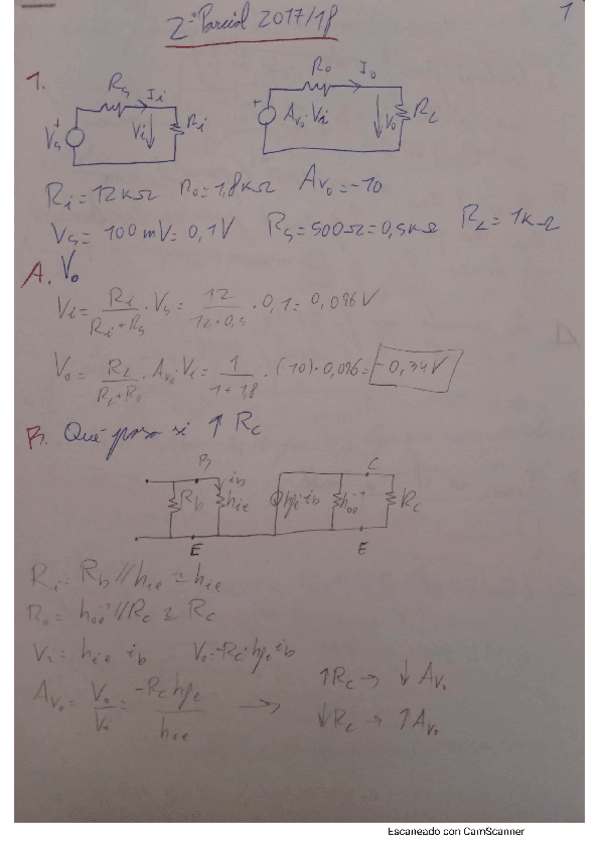 2º Parcial 2017/18
1
1.
Rs Ii Ro Io
Vs + Vi Ri + Av₀·Vi Vo RL
Ri = 12 kΩ Ro = 1,8 kΩ Av₀ = -10
Vs = 100 mV = 0,1 V Rs = 500Ω = 0,5 kΩ RL = 1 kΩ
A. Vo
Vi = Ri / Ri + Rs · Vs = 12 / 12 + 0,5 · 0,1 = 0,096 V
Vo = RL / RL + Ro · Av₀ · Vi = 1 / 1 + 1,8 · (-10) · 0,096 = -0,34 V
B. Qué pasa si ↑ Rc
B ib C
Rb hie hfe ib hoe⁻¹ Rc
E E
Ri = Rb // hie ≃ hie
Ro = hoe⁻¹ // Rc ≃ Rc
Vi = hie ib Vo = -Rc · hfe ib
Av₀ = Vo / Vi = -Rc hfe / hie → ↑Rc → ↓ Av₀
↓Rc → ↑ Av₀
Escaneado con CamScanner